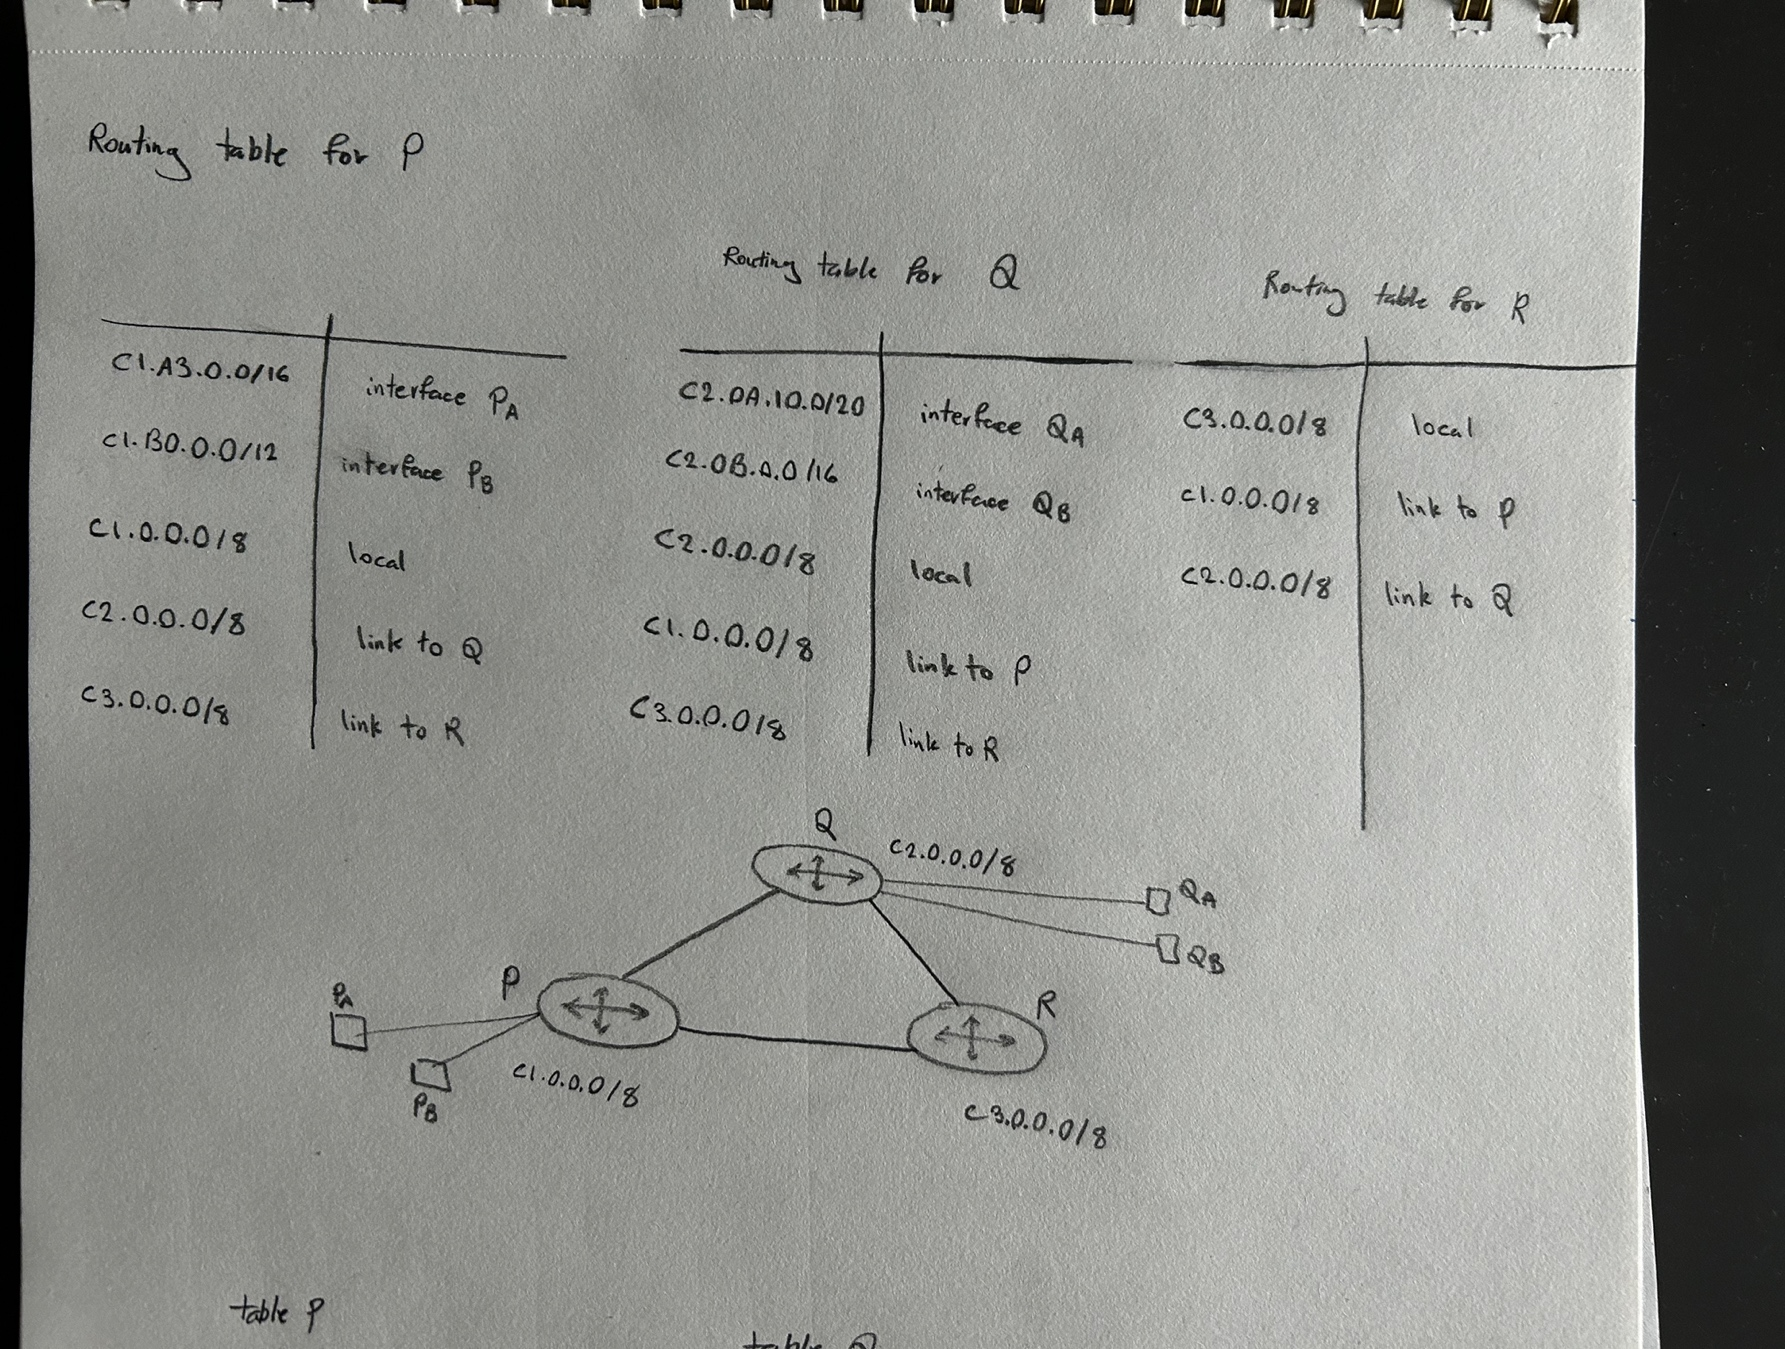 Routing table for P
C1.A3.0.0/16 interface PA
C1.B0.0.0/12 interface PB
C1.0.0.0/8 local
C2.0.0.0/8 link to Q
C3.0.0.0/8 link to R
Routing table for Q
C2.0A.10.0/20 interface QA
C2.0B.0.0/16 interface QB
C2.0.0.0/8 local
C1.0.0.0/8 link to P
C3.0.0.0/8 link to R
Routing table for R
C3.0.0.0/8 local
C1.0.0.0/8 link to P
C2.0.0.0/8 link to Q
Q
C2.0.0.0/8
QA
QB
P
PA
PB
C1.0.0.0/8
R
C3.0.0.0/8
table P
table Q